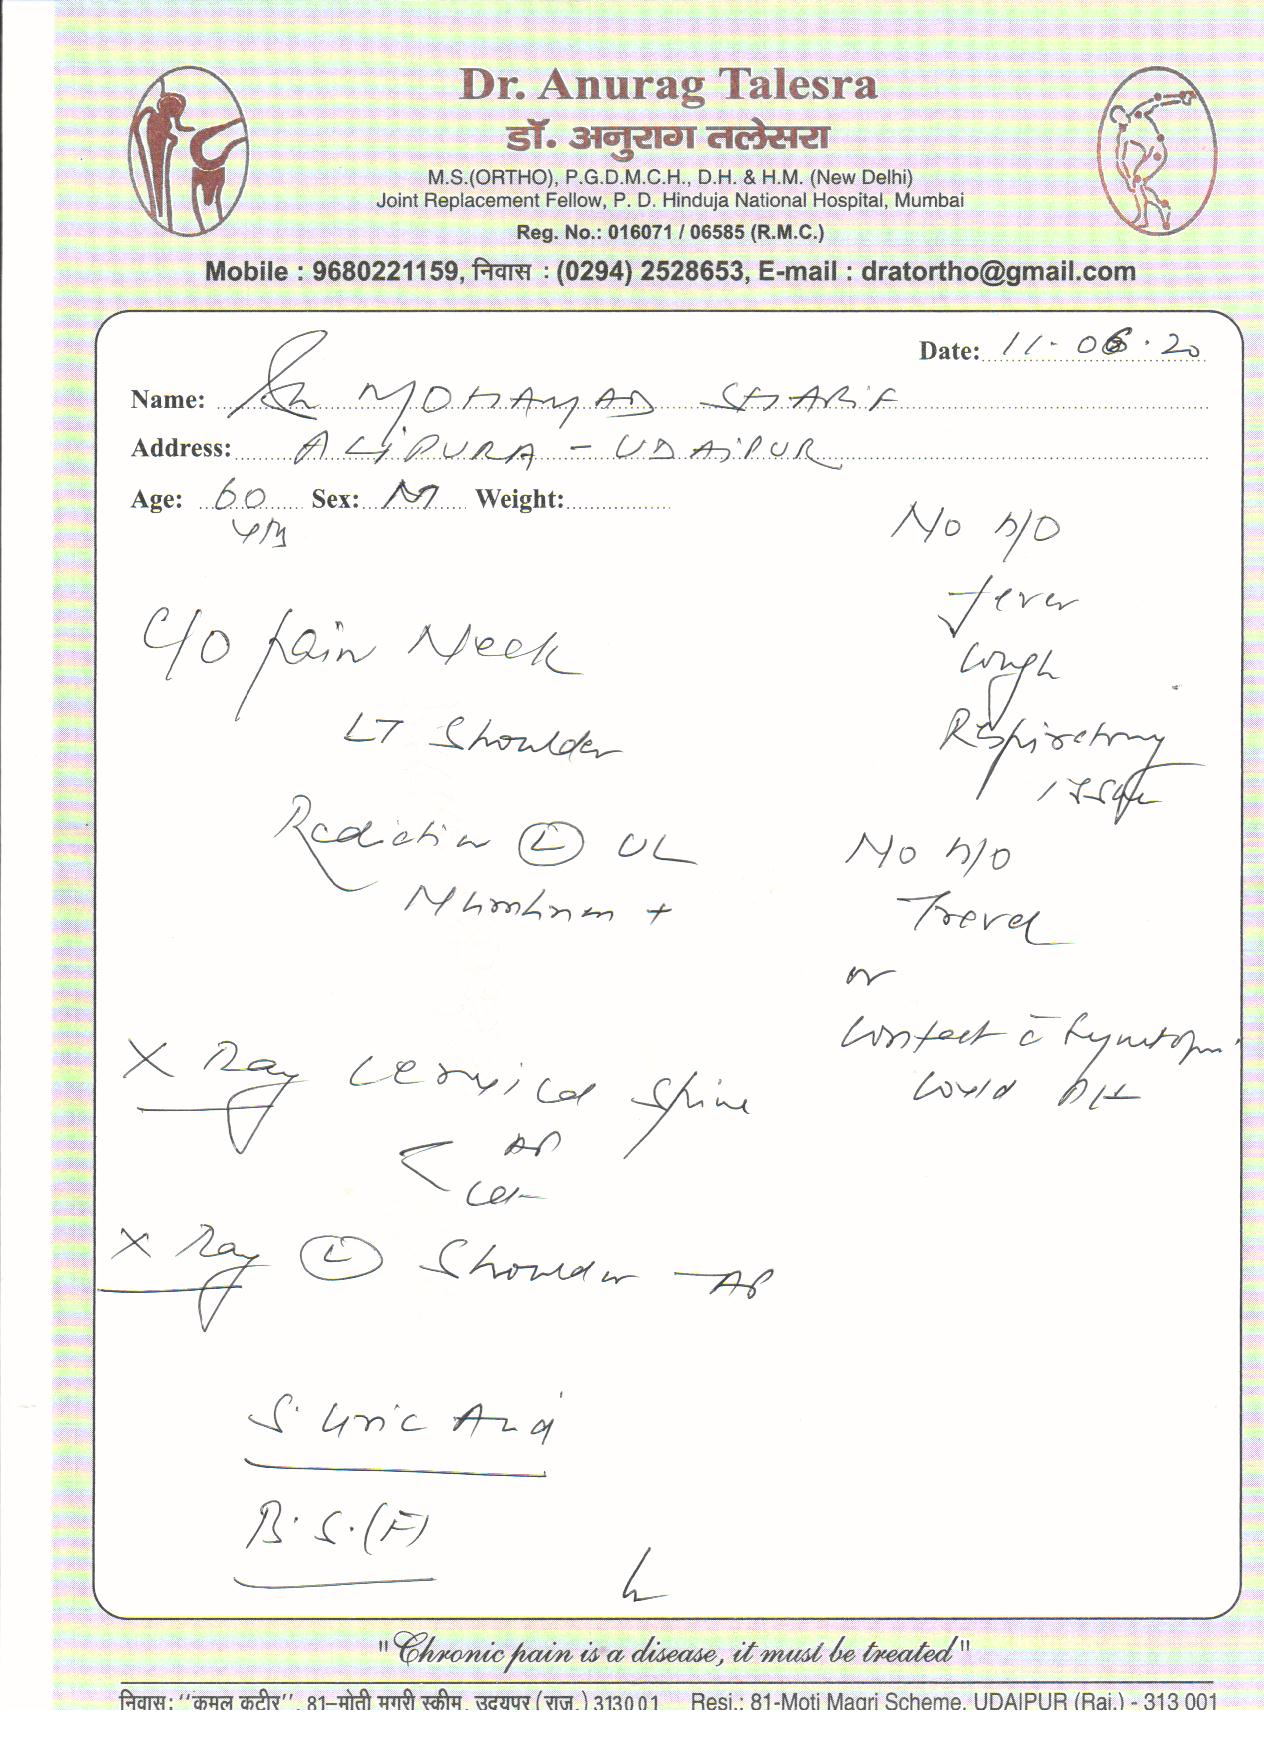 Dr. Anurag Talesra
डॉ. अनुराग तलेसरा
M.S.(ORTHO), P.G.D.M.C.H., D.H. & H.M. (New Delhi)
Joint Replacement Fellow, P. D. Hinduja National Hospital, Mumbai
Reg. No.: 016071 / 06585 (R.M.C.)
Mobile : 9680221159, निवास : (0294) 2528653, E-mail : dratortho@gmail.com
Date: 11.06.20
Name: Sh MOHAMAD SHARIF
Address: ALIPURA - UDAIPUR
Age: 60 Sex: M Weight:
yrs
C/O pain Neck
LT Shoulder
Radiation (L) UL
+
X Ray cervical spine
< AP
Lat
X Ray (L) Shoulder - AP
S. Uric Acid
B.S.(F)
No h/o
fever
cough
Respiratory
issue
No h/o
Travel
or
Contact c̄
Covid Pt
"Chronic pain is a disease, it must be treated"
निवास: "कमल कुटीर", 81-मोती मगरी स्कीम, उदयपुर (राज.) 313001 Resi.: 81-Moti Magri Scheme, UDAIPUR (Raj.) - 313 001